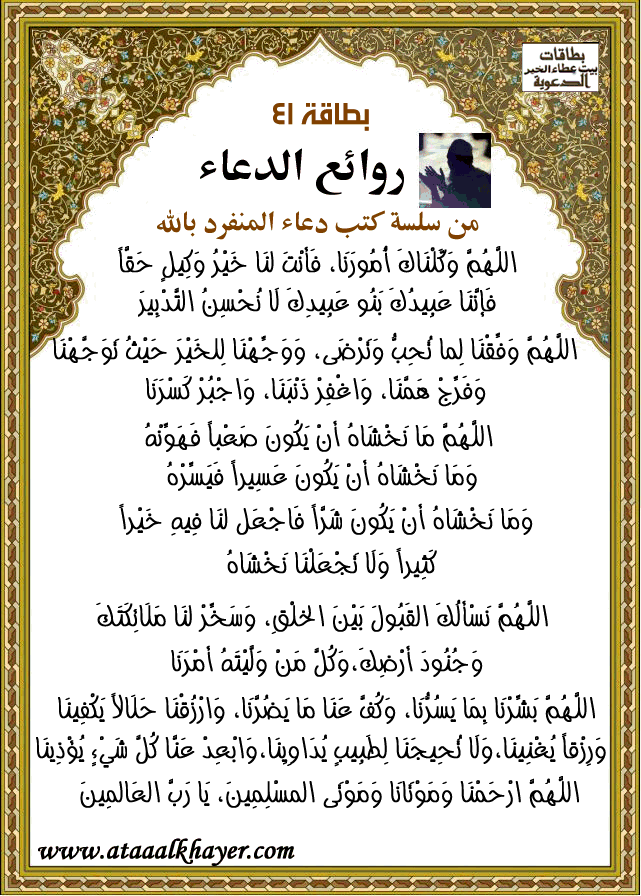 بطاقات
بيت عطاء الخير
الدعوية
بطاقة ٤١
روائع الدعاء
من سلسة كتب دعاء المنفرد بالله
اللَّهُمَّ وَكَّلْنَاكَ أُمُورَنَا، فَأَنْتَ لنَا خَيْرُ وَكِيلٍ حَقَّاً
فَإِنَّنَا عَبِيدُكَ بَنُو عَبِيدِكَ لَا نُحْسِنُ التَّدْبِيرَ
اللَّهُمَّ وَفِّقْنَا لِما نُحِبُّ وَنَرْضَى، وَوَجِّهْنَا لِلخَيْرَ حَيْثُ تَوَجَّهْنَا
وَفَرِّجْ هَمَّنَا، وَاغْفِرْ ذَنْبَنَا، وَاجْبُرْ كَسْرَنَا
اللَّهُمَّ مَا نَخْشَاهُ أنْ يَكُونَ صَعْباً فَهَوِّنْهُ
وَمَا نَخْشَاهُ أنْ يَكُونَ عَسِيراً فَيَسِّرْهُ
وَمَا نَخْشَاهُ أنْ يَكُونَ شَرَّاً فَاجْعَل لنَا فِيهِ خَيْراً
كَثِيراً وَلَا تَجْعَلْنَا نَخْشَاهُ
اللَّهُمَّ نَسْألُكَ القَبُولَ بَيْنَ الخلْقِ، وَسَخِّرْ لنَا مَلَائِكَتَكَ
وَجُنُودَ أرْضِكَ،وَكُلَّ مَنْ وَلَّيْتَهُ أمْرَنَا
اللَّهُمَّ بَشِّرْنَا بِمَا يَسُرُّنَا، وَكُفَّ عَنَا مَا يَضُرَّنَا، وَارْزُقْنَا حَلَالاً يَكْفِينَا
وَرِزْقاً يُغْنِينَا،وَلَا تُحِيجَنَا لِطَبِيبٍ يُدَاوِينَا،وَابْعِدْ عَنَّا كُلَّ شَيْءٍ يُؤْذِينَا
اللَّهُمَّ ارْحَمْنَا وَمَوْتَانَا وَمَوْتَى المسْلِمِينَ، يَا رَبَّ العَالمِينَ
www.ataaalkhayer.com